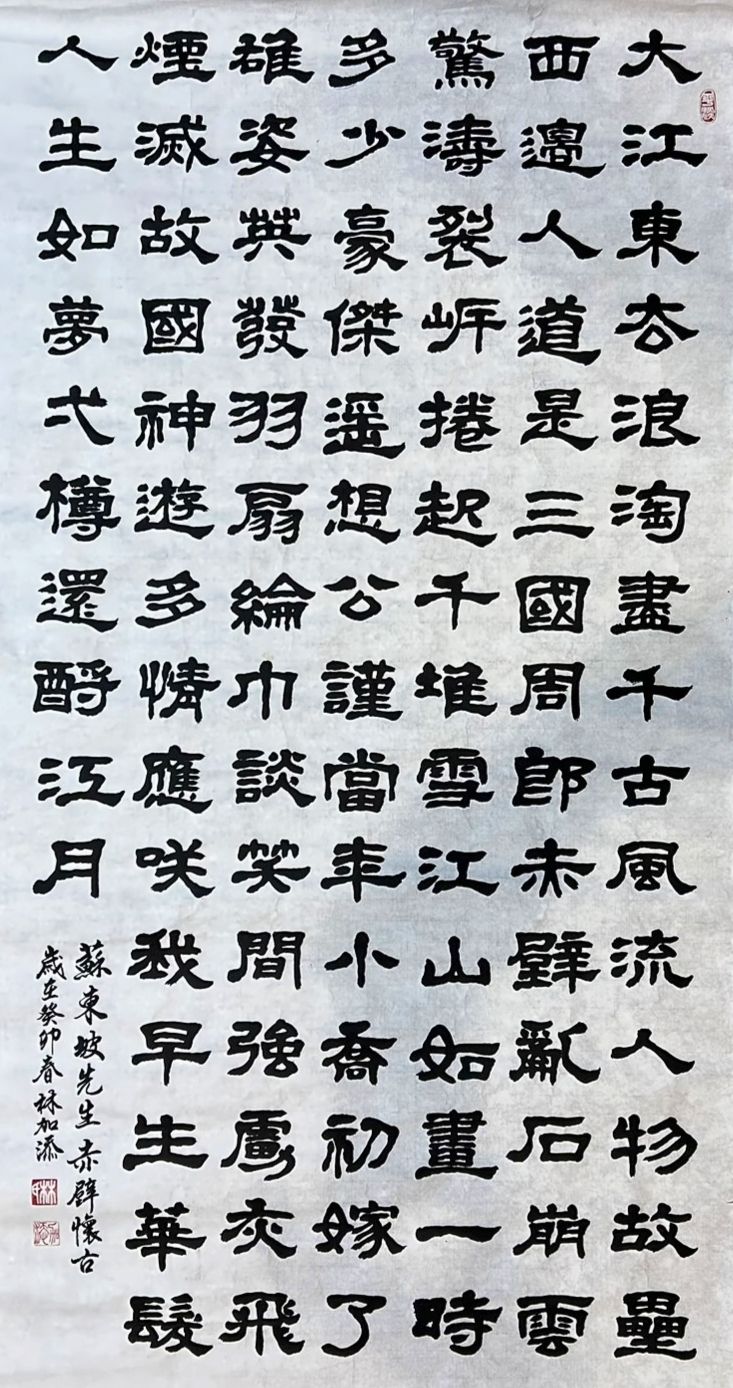 大江東去浪淘盡千古風流人物故壘
西邊人道是三國周郎赤壁亂石崩雲
驚濤裂岸捲起千堆雪江山如畫一時
多少豪傑遥想公謹當年小喬初嫁了
雄姿英發羽扇綸巾談笑間強虜灰飛
煙滅故國神遊多情應咲我早生華髮
人生如夢弌樽還酹江月
蘇東坡先生赤壁懷古
歲在癸卯春林加添